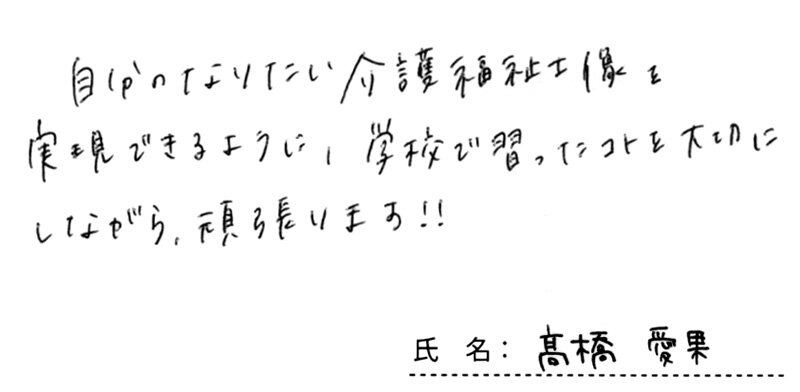 自分のなりたい介護福祉士像を
実現できるように、学校で習ったコトを大切に
しながら、頑張ります!!
氏名：髙橋 愛果